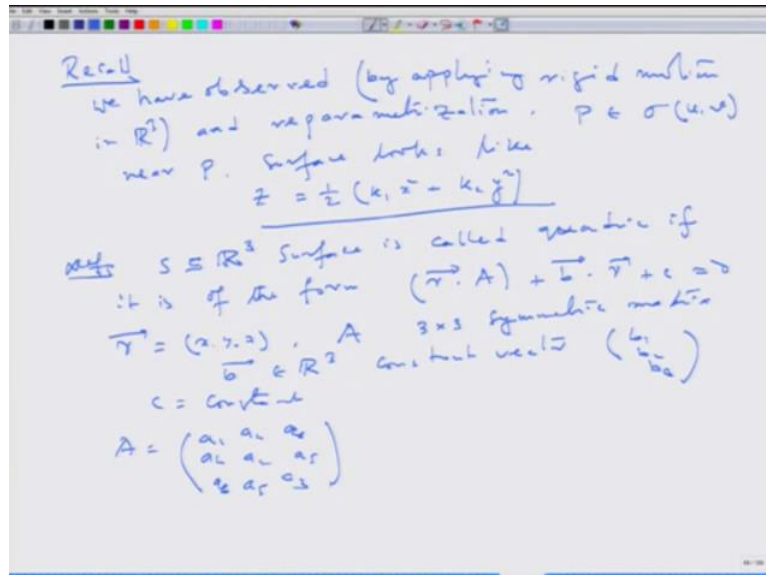 Recall
we have observed (by applying rigid motion
in R³) and reparametrization. P ∈ σ(u,v)
near P. Surface looks like
z = ½ (k₁ x² - k₂ y²)
Def S ⊆ R³ Surface is called quadric if
it is of the form (r⃗ · A) + b⃗ · r⃗ + c = 0
r⃗ = (x, y, z), A 3×3 symmetric matrix
b⃗ ∈ R³ constant vector (b₁ b₂ b₃)
c = constant
A = (a₁ a₄ a₆
a₄ a₂ a₅
a₆ a₅ a₃)